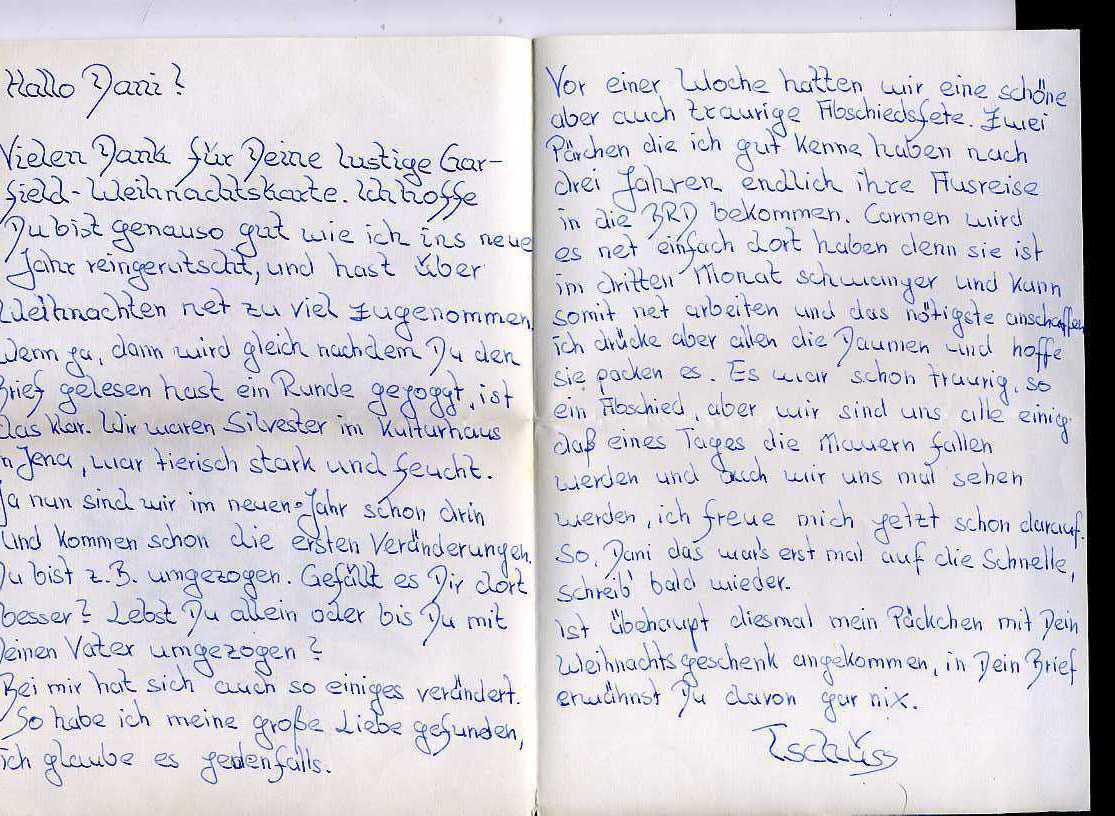 Hallo Dani!
Vielen Dank für Deine lustige Gar-
field-Weihnachtskarte. Ich hoffe
Du bist genauso gut wie ich ins neue
Jahr reingerutscht, und hast über
Weihnachten net zu viel zugenommen.
Wenn ja, dann wird gleich nachdem Du den
Brief gelesen hast ein Runde gejoggt, ist
das klar. Wir waren Silvester im Kulturhaus
in Jena, war tierisch stark und feucht.
Ja nun sind wir im neuen Jahr schon drin
und kommen schon die ersten Veränderungen.
Du bist z.B. umgezogen. Gefällt es Dir dort
besser? Lebst Du allein oder bis Du mit
Deinen Vater umgezogen?
Bei mir hat sich auch so einiges verändert.
So habe ich meine große Liebe gefunden,
ich glaube es jedenfalls.
Vor einer Woche hatten wir eine schöne
aber auch traurige Abschiedsfete. Zwei
Pärchen die ich gut kenne haben nach
drei Jahren endlich ihre Ausreise
in die BRD bekommen. Carmen wird
es net einfach dort haben denn sie ist
im dritten Monat schwanger und kann
somit net arbeiten und das nötigste anschaffen
ich drücke aber allen die Daumen und hoffe
sie packen es. Es war schon traurig, so
ein Abschied, aber wir sind uns alle einig
daß eines Tages die Mauern fallen
werden und auch wir uns mal sehen
werden, ich freue mich jetzt schon darauf.
So, Dani das war's erst mal auf die Schnelle,
schreib' bald wieder.
Ist übehaupt diesmal mein Päckchen mit Dein
Weihnachtsgeschenk angekommen, in Dein Brief
erwähnst Du davon gar nix.
Tschüss